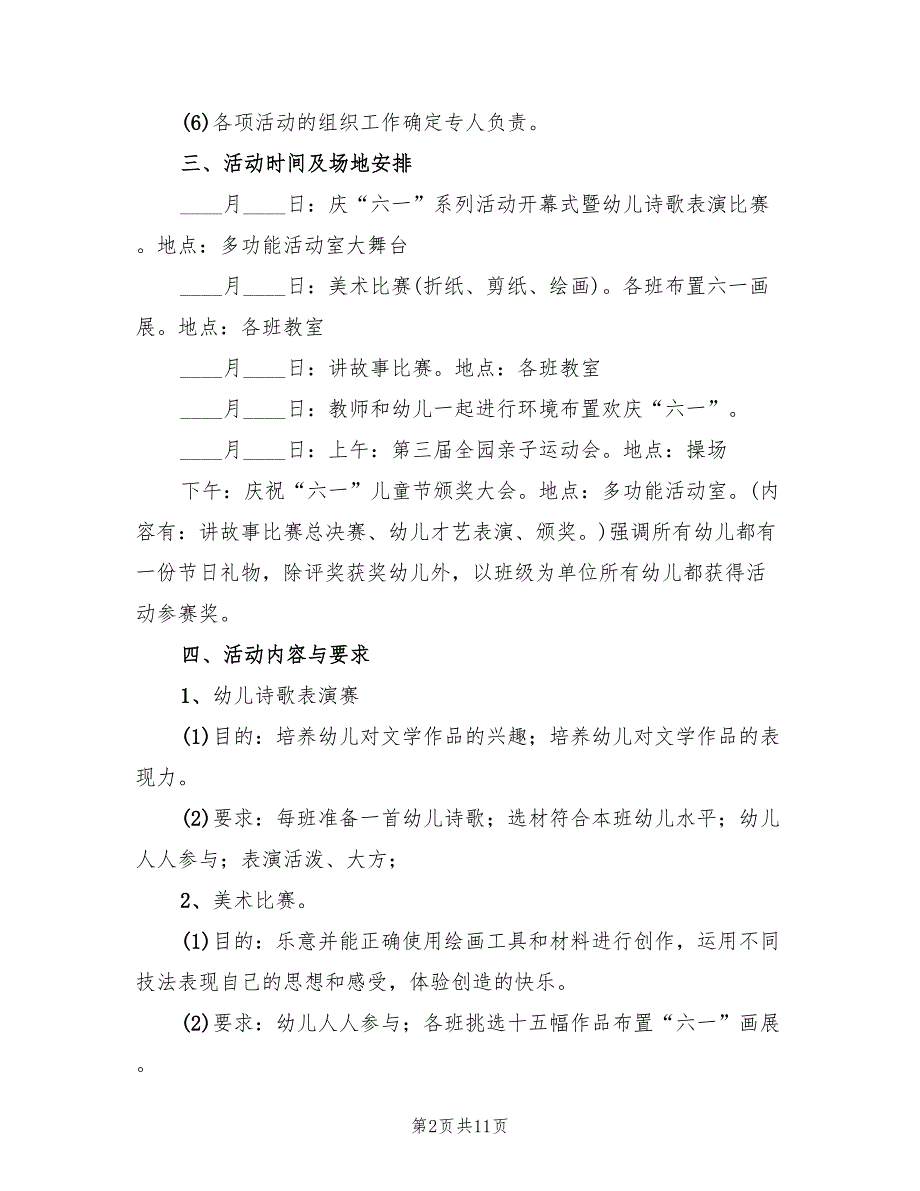 (6)各项活动的组织工作确定专人负责。
三、活动时间及场地安排
____月____日：庆“六一”系列活动开幕式暨幼儿诗歌表演比赛
。地点：多功能活动室大舞台
____月____日：美术比赛(折纸、剪纸、绘画)。各班布置六一画
展。地点：各班教室
____月____日：讲故事比赛。地点：各班教室
____月____日：教师和幼儿一起进行环境布置欢庆“六一”。
____月____日：上午：第三届全园亲子运动会。地点：操场
下午：庆祝“六一”儿童节颁奖大会。地点：多功能活动室。(内
容有：讲故事比赛总决赛、幼儿才艺表演、颁奖。)强调所有幼儿都有
一份节日礼物，除评奖获奖幼儿外，以班级为单位所有幼儿都获得活
动参赛奖。
四、活动内容与要求
1、幼儿诗歌表演赛
(1)目的：培养幼儿对文学作品的兴趣；培养幼儿对文学作品的表
现力。
(2)要求：每班准备一首幼儿诗歌；选材符合本班幼儿水平；幼儿
人人参与；表演活泼、大方；
2、美术比赛。
(1)目的：乐意并能正确使用绘画工具和材料进行创作，运用不同
技法表现自己的思想和感受，体验创造的快乐。
(2)要求：幼儿人人参与；各班挑选十五幅作品布置“六一”画展
。
第2页共11页